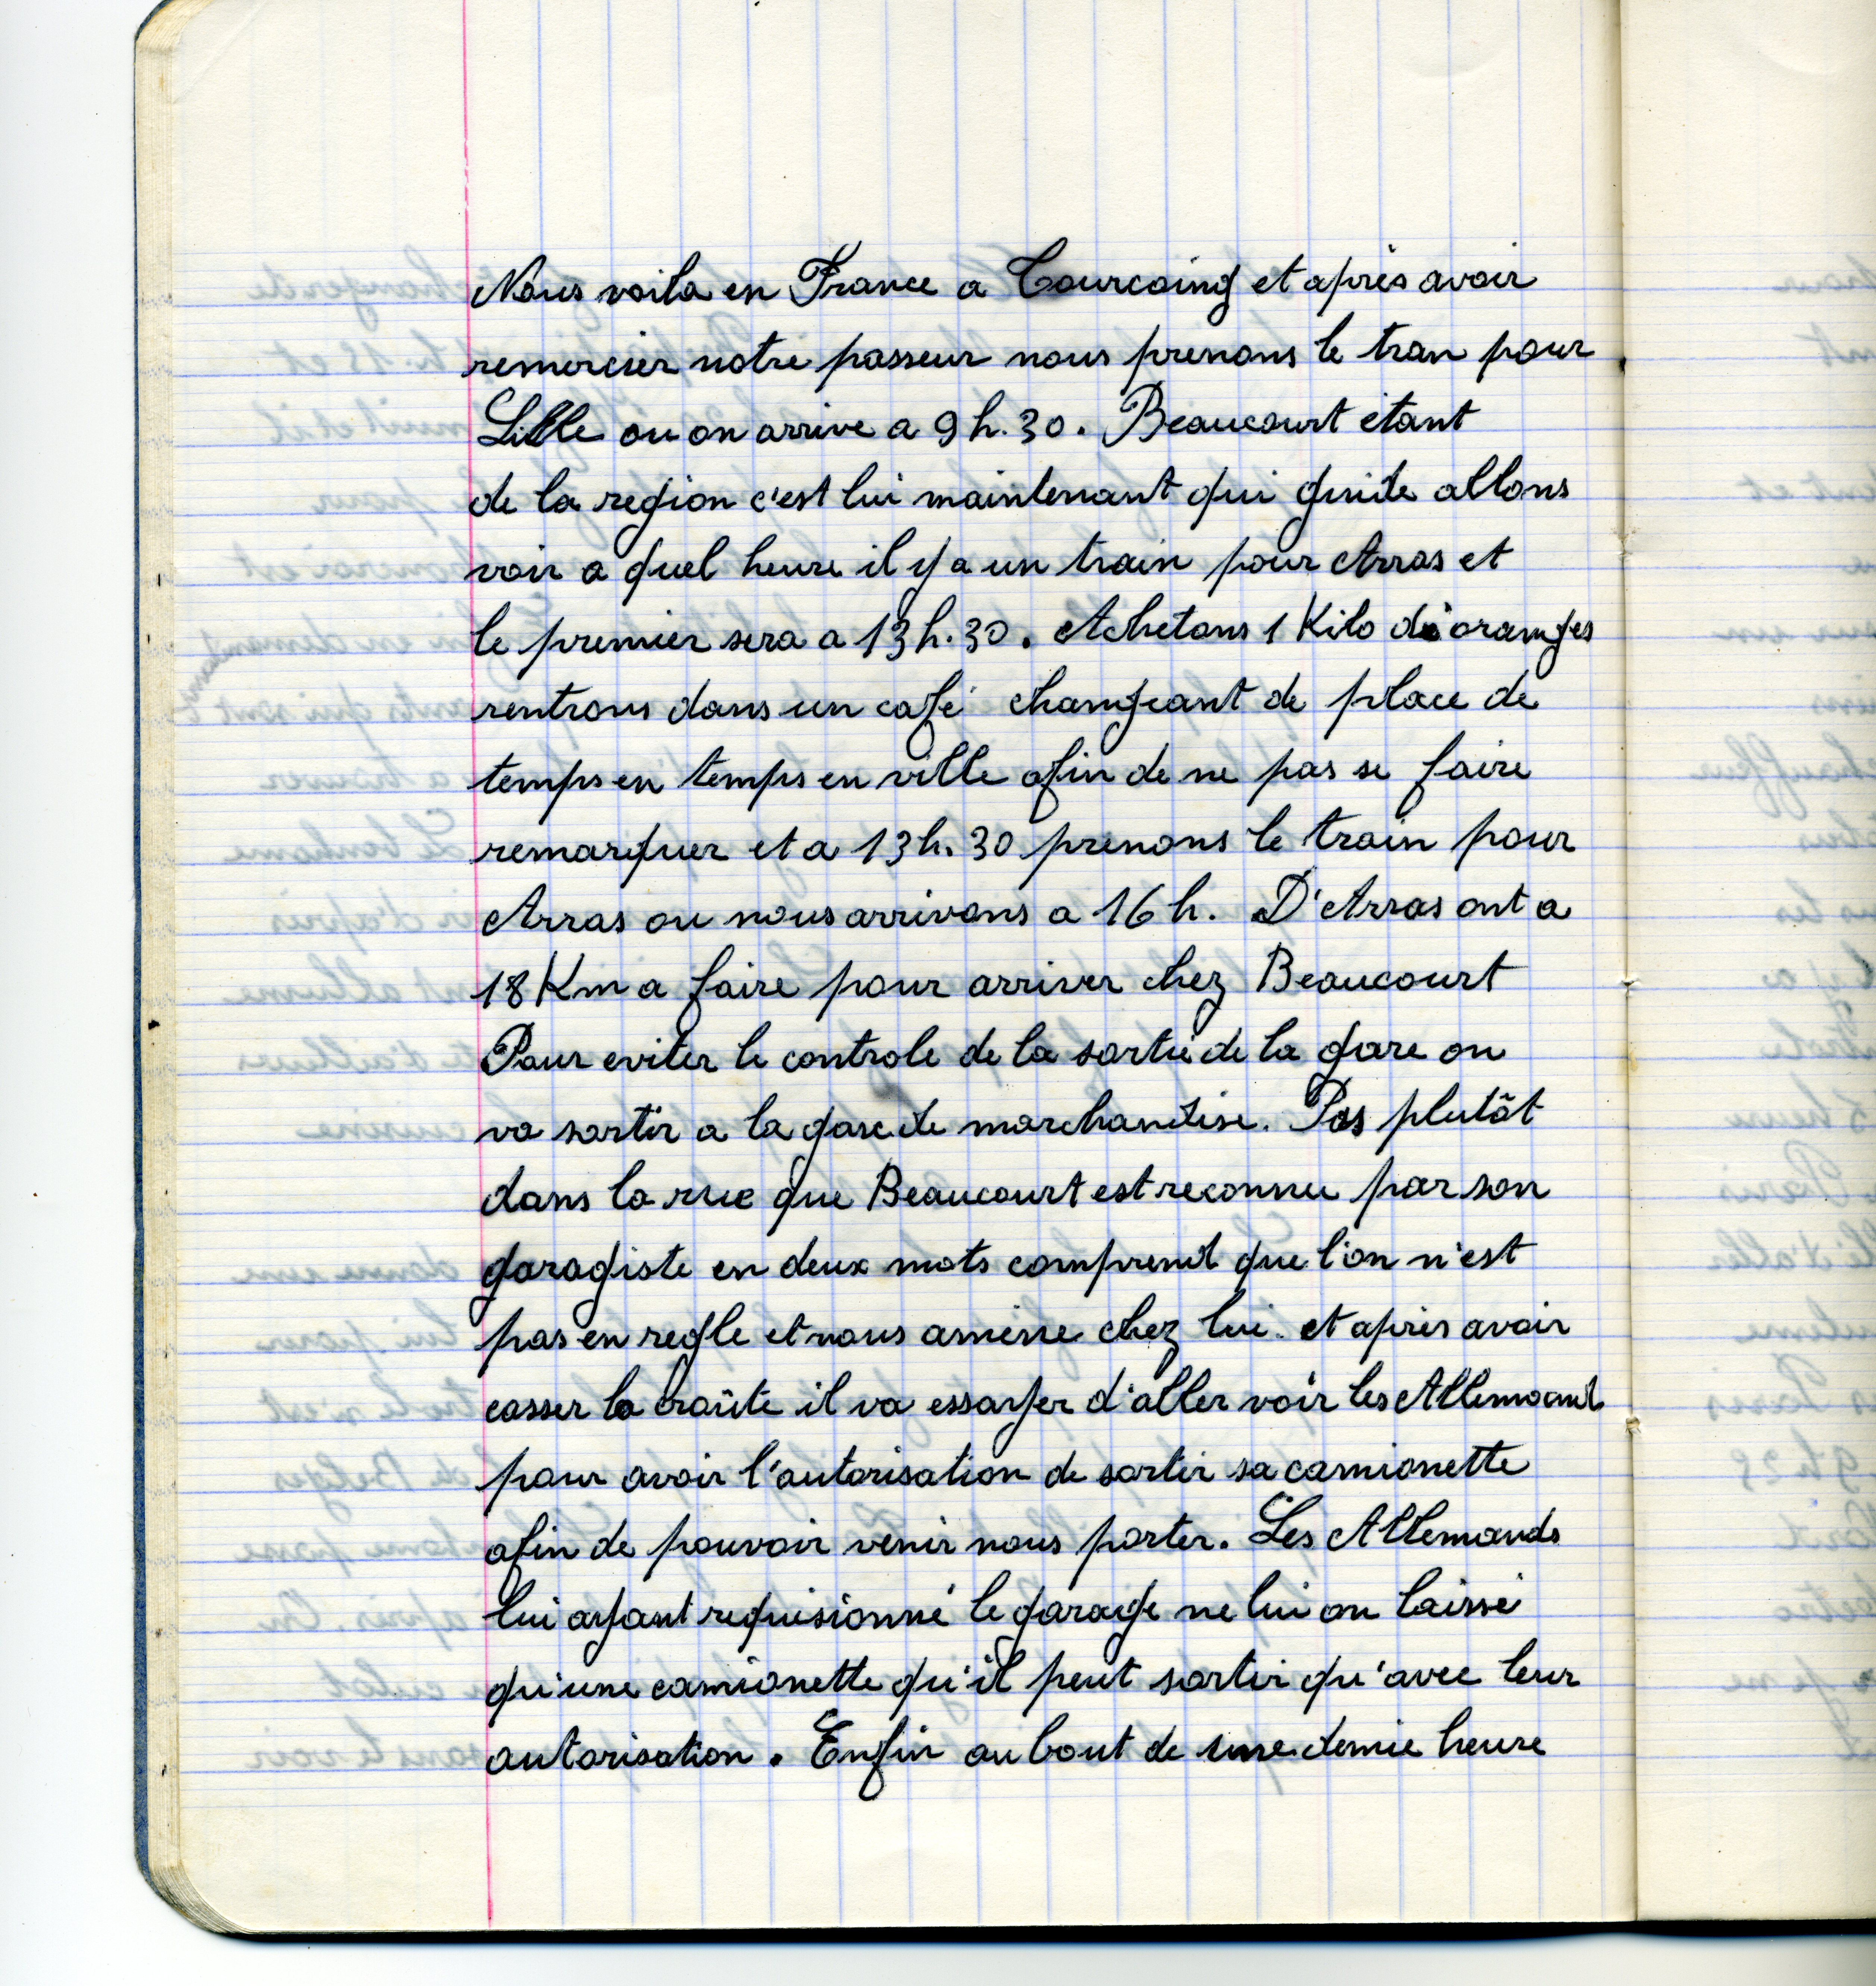 Nous voila en France a Tourcoing et après avoir
remercier notre passeur nous prenons le tran pour
Lille ou on arrive a 9 h. 30. Beaucourt étant
de la region c'est lui maintenant qui guide allons
voir a quel heure il y a un train pour Arras et
le premier sera a 13 h. 30. Achetons 1 Kilo d'oranges
rentrons dans un café changeant de place de
temps en temps en ville afin de ne pas se faire
remarquer et a 13 h. 30 prenons le train pour
Arras ou nous arrivons a 16 h. D'Arras ont a
18 Km a faire pour arriver chez Beaucourt
Pour eviter le controle de la sortie de la gare on
va sortir a la gare de marchandise. Pas plutôt
dans la rue que Beaucourt est reconnu par son
garagiste en deux mots comprend que l'on n'est
pas en regle et nous amene chez lui. et après avoir
casser la croûte il va essayer d'aller voir les Allemand
pour avoir l'autorisation de sortir sa camionette
afin de pouvoir venir nous porter. Les Allemands
lui ayant requisionné le garage ne lui on laissé
qu'une camionette qu'il peut sortir qu'avec leur
autorisation. Enfin au bout de une demie heure